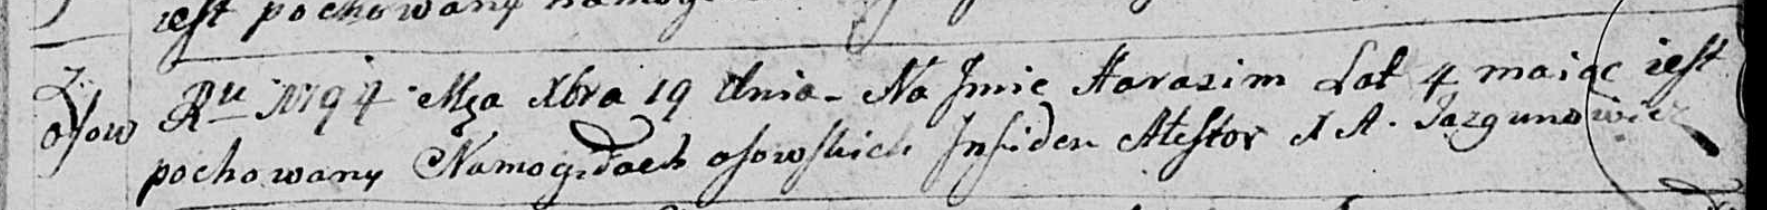 iest pochowany
Z:
osow
Ru 1794 Msa Xbra 19 dnia - Na Jmie Harasim Lat 4 maiąc iest
pochowany Namogiłach osowskich Jnfidem Atestor X A. Jazgunowicz